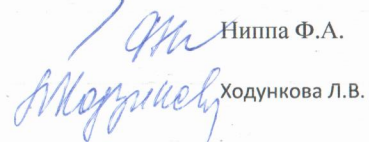 Ниппа Ф.А.
Ходункова Л.В.